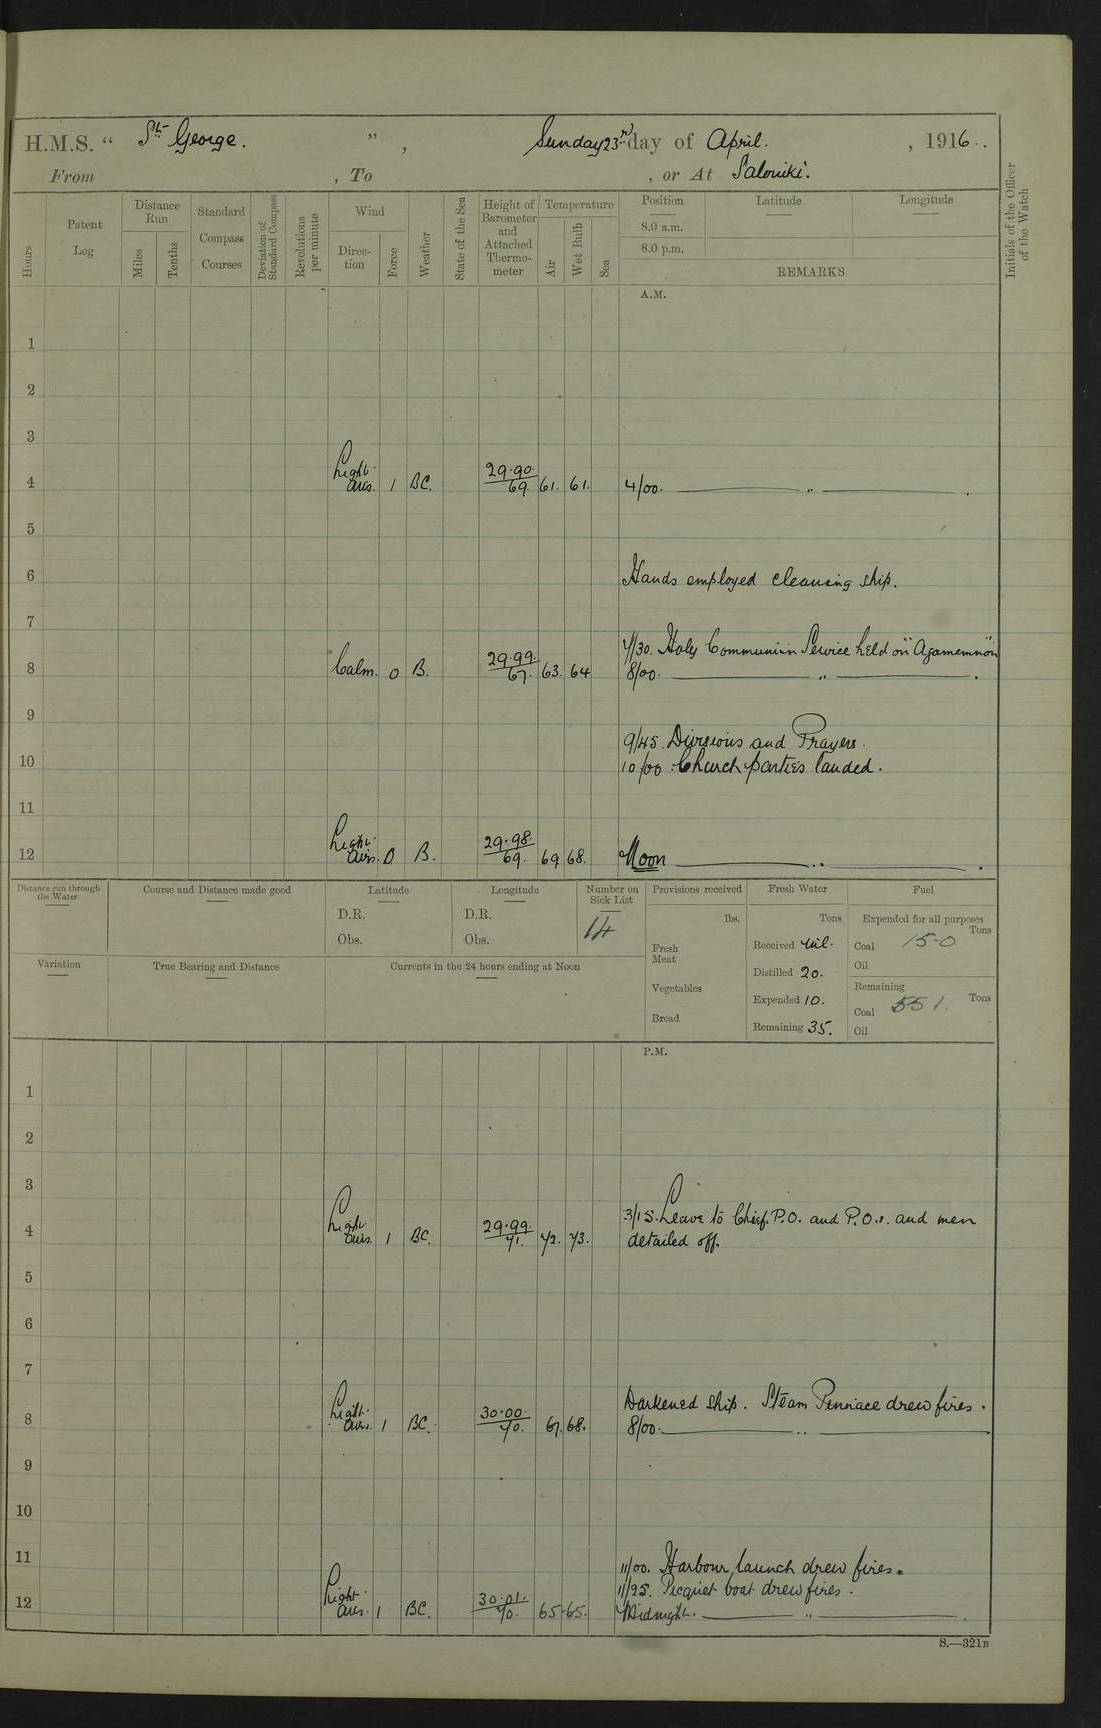 H.M.S. " St George. ", Sunday 23rd day of April. , 1916..
From , To , or At Saloniki.
Hours
Patent Log
Distance Run
Miles
Tenths
Standard Compass Courses
Deviation of Standard Compass
Revolutions per minute
Wind
Direc- tion
Force
Weather
State of the Sea
Height of Barometer and Attached Thermo- meter
Temperature
Air
Wet Bulb
Sea
Position Latitude Longitude
8.0 a.m.
8.0 p.m.
REMARKS
Initials of the Officer of the Watch
A.M.
1
2
3
4 Light airs. 1 BC. 29.90. 69. 61. 61. 4/00. "
5
6 Hands employed cleaning ship.
7
7/30. Holy Communion Service held on "Agamemnon"
8 Calm. 0 B. 29.99. 67. 63. 64 8/00. "
9
9/45. Divisions and Prayers.
10 10/00. Church parties landed.
11
12 Light airs. 0 B. 29.98. 69. 69 68. Noon "
Distance run through the Water
Course and Distance made good
Latitude
D.R.
Obs.
Longitude
D.R.
Obs.
Number on Sick List
14
Provisions received
lbs.
Fresh Meat
Vegetables
Bread
Fresh Water
Tons
Received Nil.
Distilled 20.
Expended 10.
Remaining 35.
Fuel
Expended for all purposes
Tons
Coal 15-0
Oil
Remaining
Tons
Coal 551.
Oil
Variation
True Bearing and Distance
Currents in the 24 hours ending at Noon
P.M.
1
2
3
3/15. Leave to Chief. P.O. and P.O.s. and men
4 Light airs. 1 BC. 29.99. 71. 72. 73. detailed off.
5
6
7
Darkened ship. Steam Pinnace drew fires.
8 Light airs. 1 BC. 30.00. 70. 67. 68. 8/00. "
9
10
11 11/00. Harbour launch drew fires.
11/25. Picquet boat drew fires.
12 Light airs. 1 BC. 30.01. 70. 65. 65. Midnight. "
S.—321B